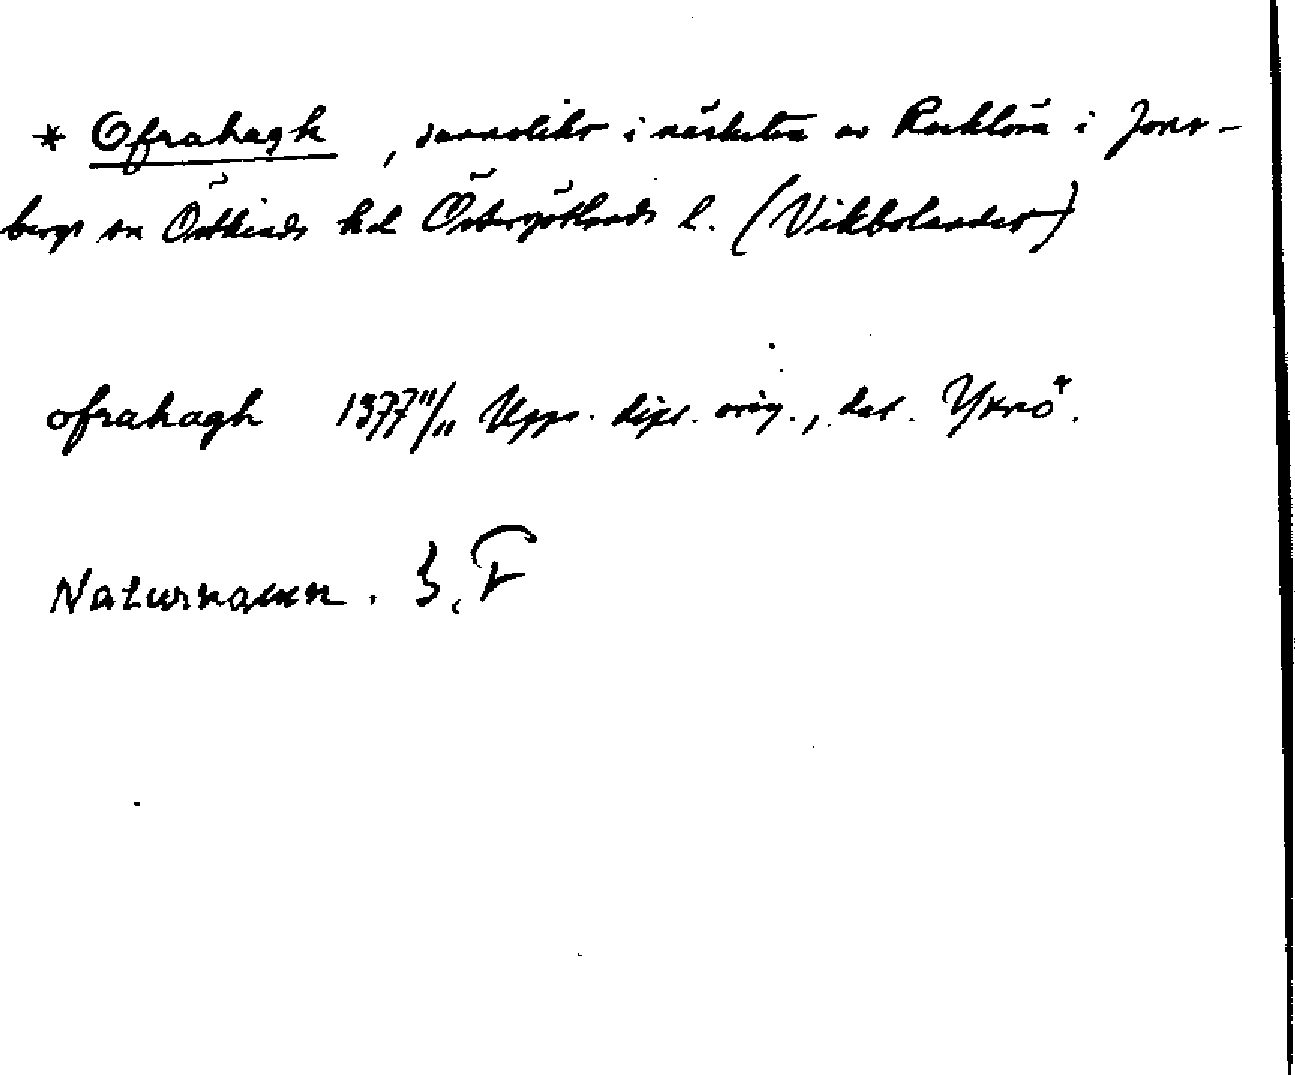 * Ofrahagh, sannolikt i närheten av Rocklösa i Jons-
bergs sn Östkinds hd Östergötlands l. (Vikbolandet)
ofrahagh 1377 11/11 Upps. dipl. orig., dat. Yxnö.
Naturnamn.